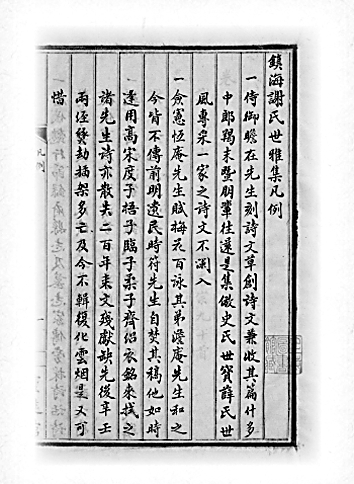 鎮海謝氏世雅集凡例
一侍御瞻在先生刻詩文草創詩文兼收其篇什多
中郎羯末暨朋輩往還是集倣史氏世寶薛氏世
風專采一家之詩文不闌入
一僉憲恆庵先生賦梅花百詠其弟澹庵先生和之
今皆不傳前明遺民時符先生自焚其稿他如時
逢用高宋度子梧子臨子柔子齊紹衣銘來找之
諸先生詩亦散失二百年來文殘獻缺先後辛壬
兩經燹劫插架多亡及今不輯復化雲烟是又可
惜
凡例
一